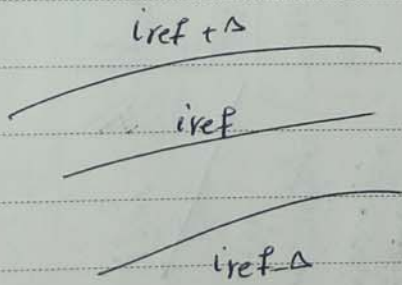 iref + Δ
iref
iref - Δ